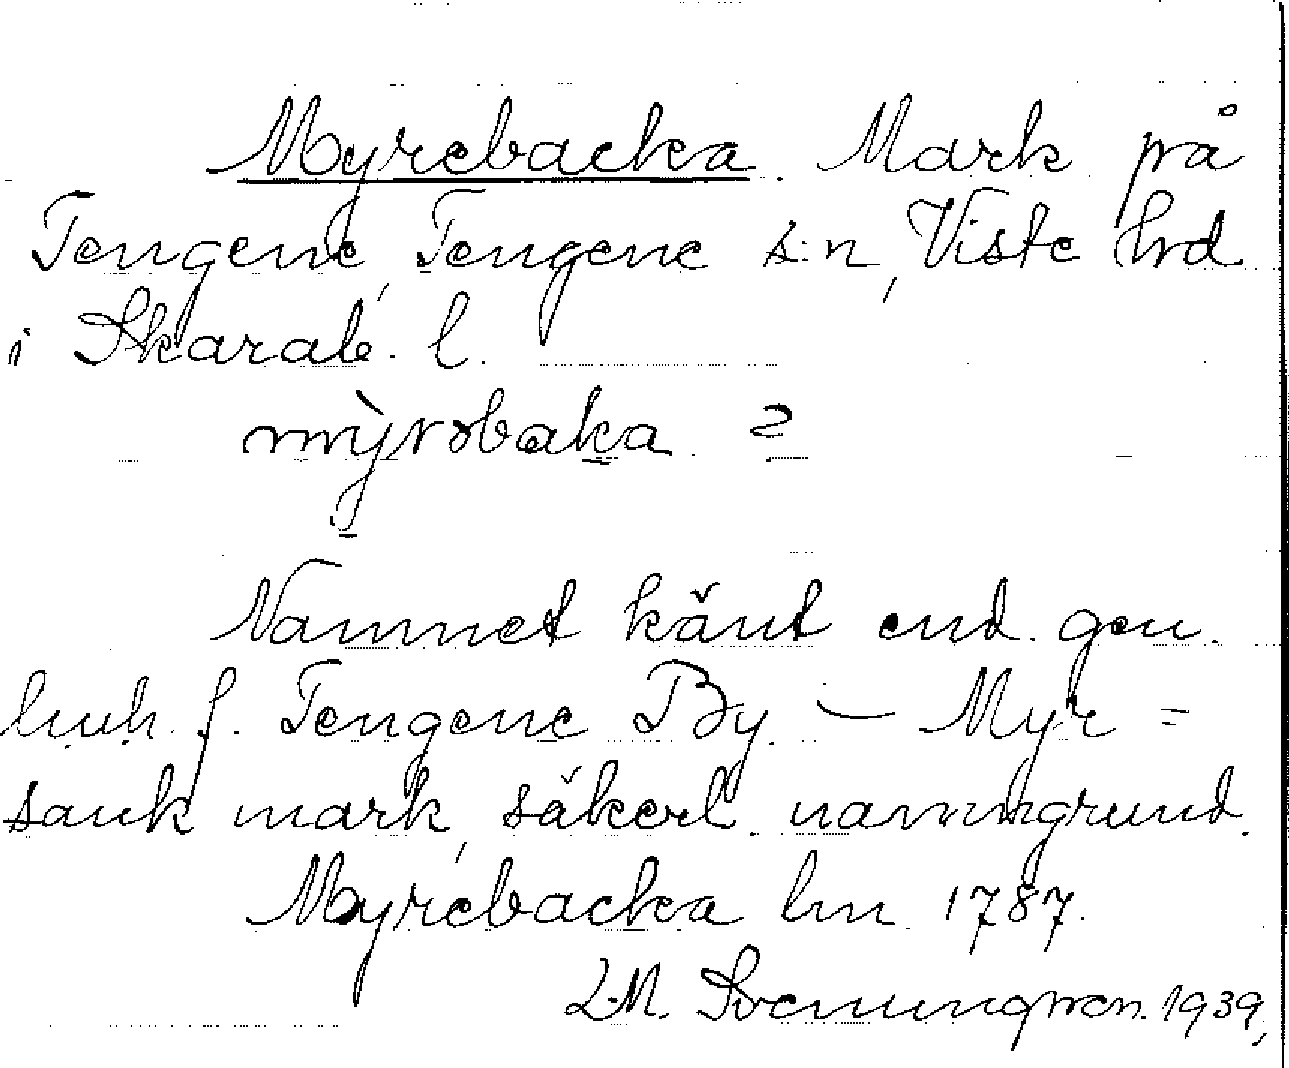 Myrebacka. Mark på
Tengene, Tengene s:n, Viste hrd
i Skarab. l.
mỳrobaka. 2
Namnet känt end. gen.
lmh. f. Tengene By. — Myr =
sank mark, säkerl. namngrund.
Myrebacka lm 1787.
L.M. Svenungsson. 1939,